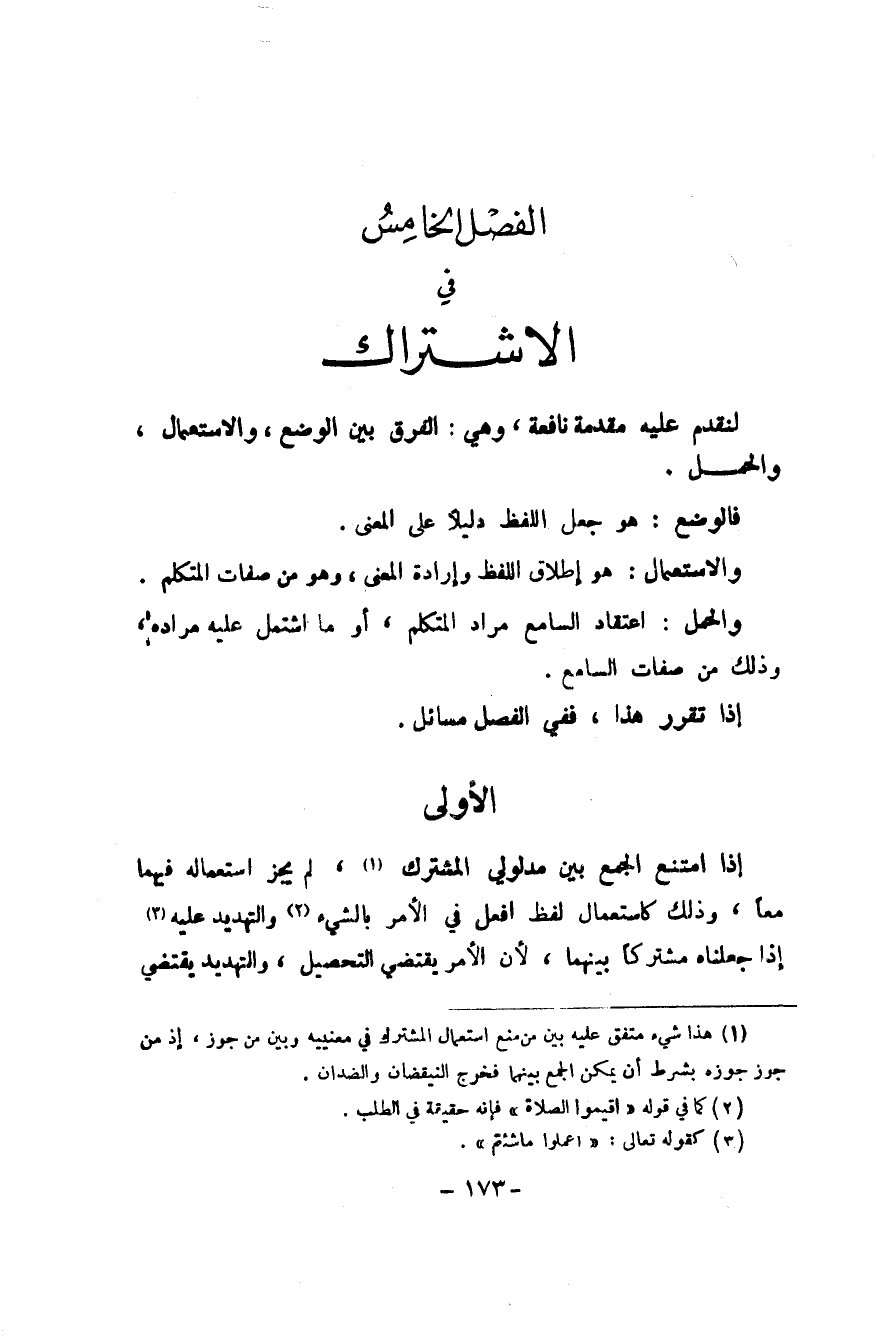 الفصل الخامس
في
الاشتراك
لنقدم عليه مقدمة نافعة ، وهي : الفرق بين الوضع ، والاستعمال ،
والحمل .
فالوضع : هو جعل اللفظ دليلاً على المعنى .
والاستعمال : هو إطلاق اللفظ وإرادة المعنى ، وهو من صفات المتكلم .
والحمل : اعتقاد السامع مراد المتكلم ، أو ما اشتمل عليه مراده ،
وذلك من صفات السامع .
إذا تقرر هذا ، ففي الفصل مسائل .
الأولى
إذا امتنع الجمع بين مدلولي المشترك (١) ، لم يجز استعماله فيهما
معاً ، وذلك كاستعمال لفظ افعل في الأمر بالشيء (٢) والتهديد عليه (٣)
إذا جعلناه مشتركاً بينهما ، لأن الأمر يقتضي التحصيل ، والتهديد يقتضي
(١) هذا شيء متفق عليه بين من منع استعمال المشترك في معنييه وبين من جوز ، إذ من
جوز جوزه بشرط أن يمكن الجمع بينهما فخرج النيقضان والضدان .
(٢) كما في قوله « اقيموا الصلاة » فإنه حقيقة في الطلب .
(٣) كقوله تعالى : « اعملوا ماشئتم » .
- ١٧٣ -